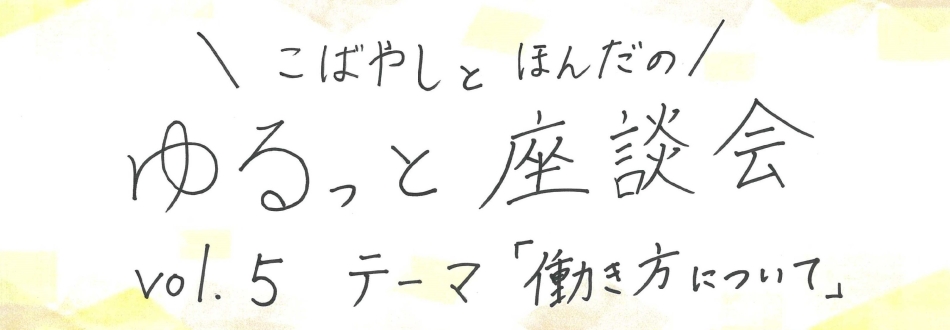 \ こばやしと ほんだの /
ゆるっと座談会
vol.5 テーマ「働き方について」